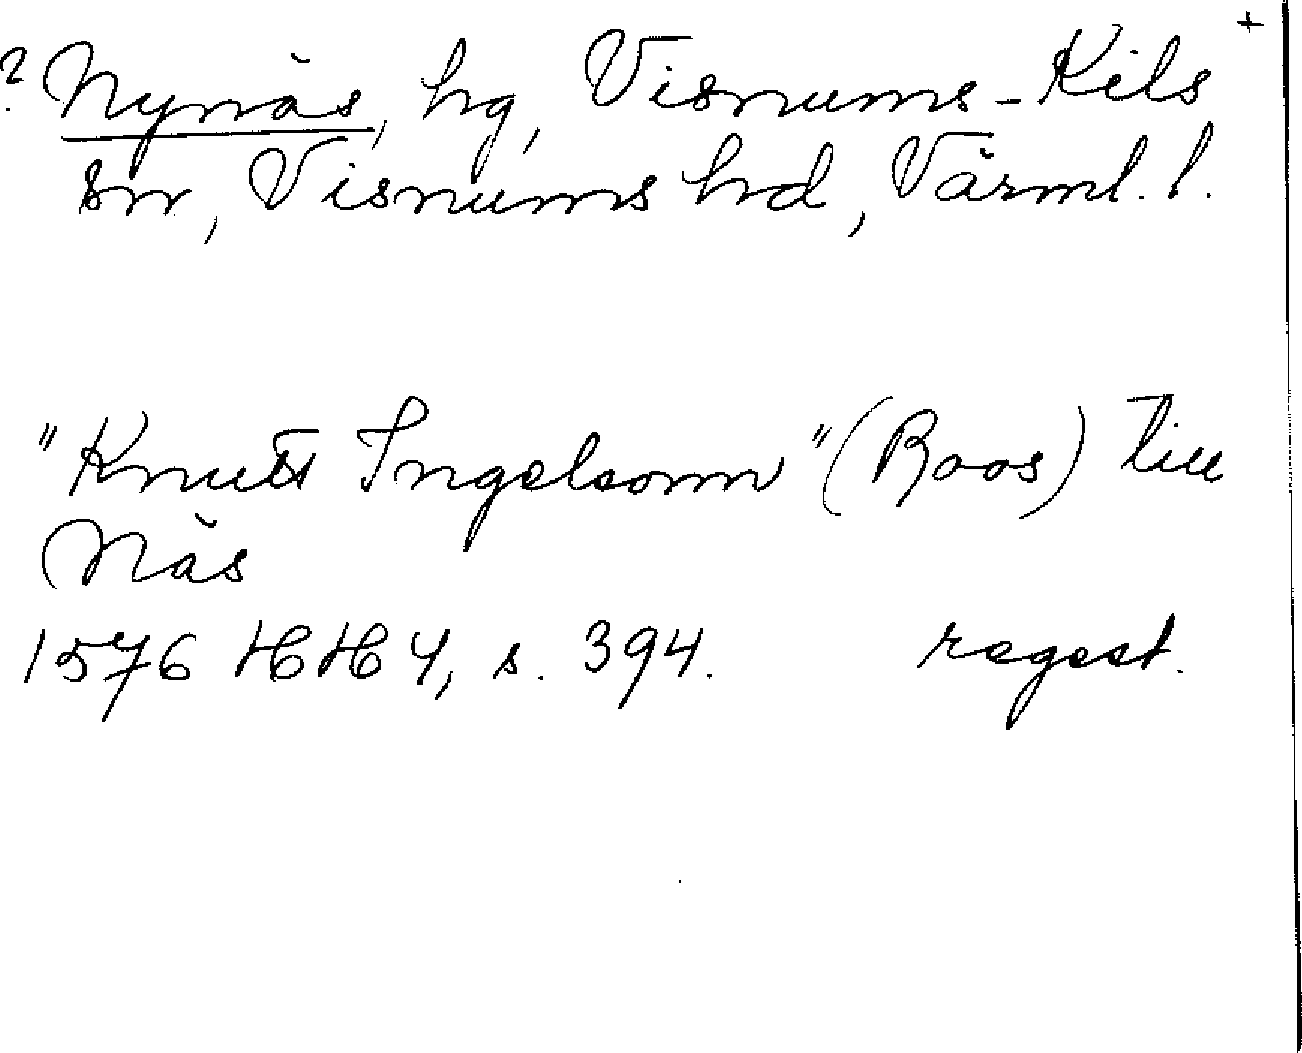 +
? Nynäs, hg, Visnums-Kils
sn, Visnums hd, Värml. l.
"Knutt Ingelsonn" (Roos) till
Näs
1576 HH 4, s. 394. regest.